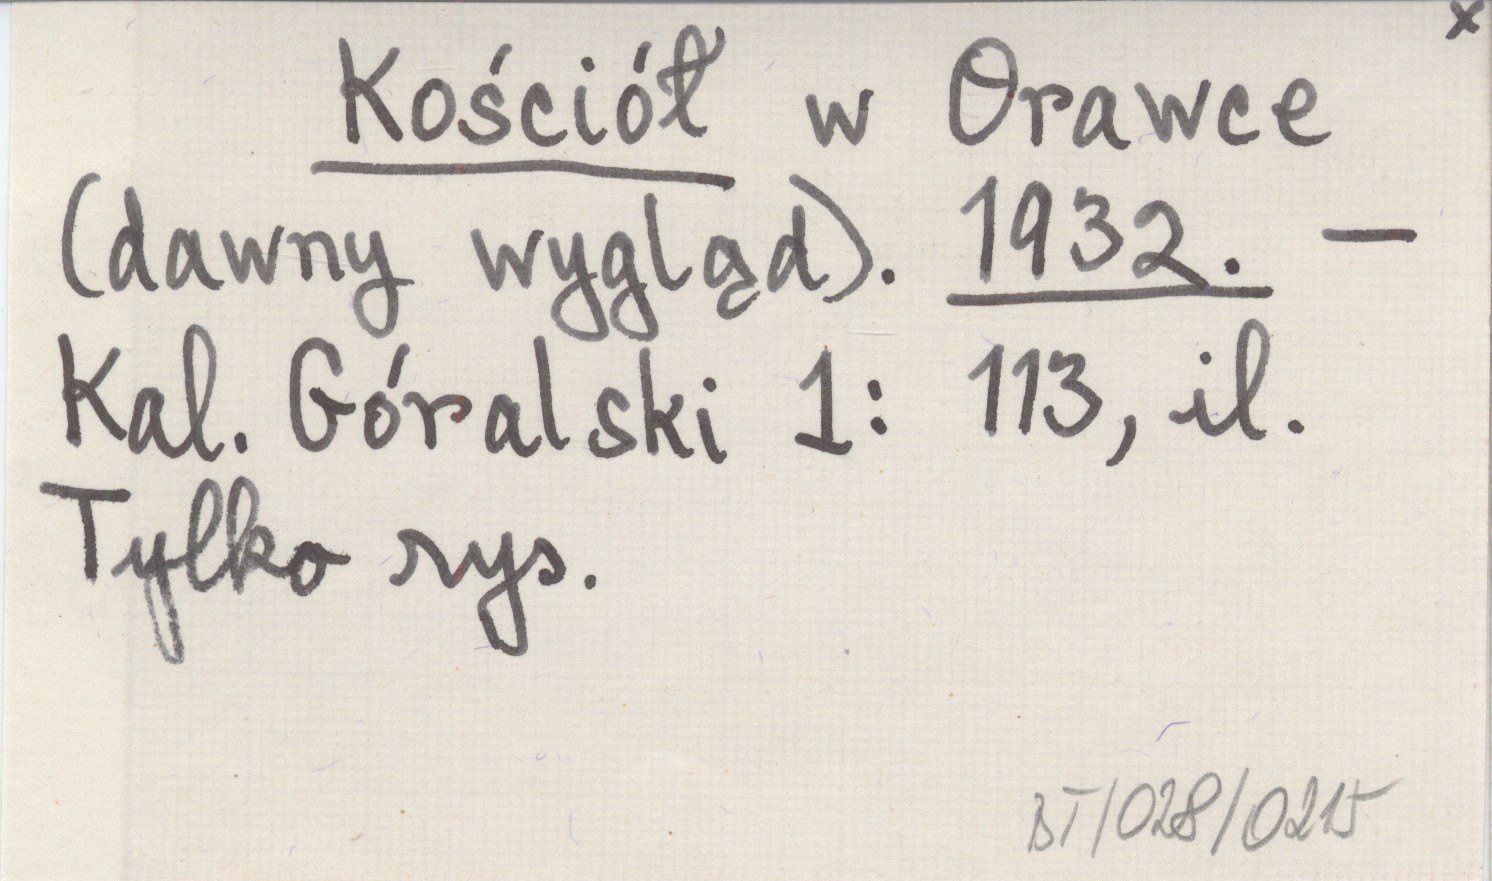 x
Kościół w Orawce
(dawny wygląd). 1932. —
Kal. Góralski 1: 113, il.
Tylko rys.
BT/028/0215